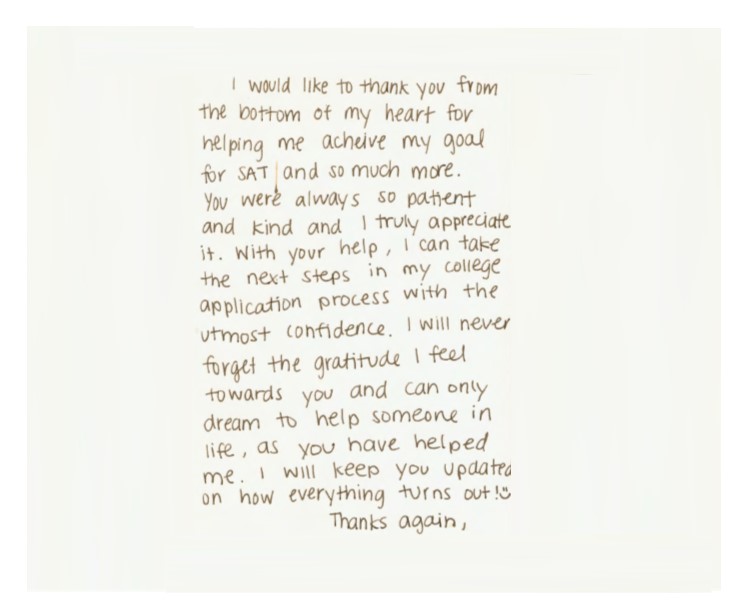 I would like to thank you from
the bottom of my heart for
helping me acheive my goal
for SAT and so much more.
You were always so patient
and kind and I truly appreciate
it. With your help, I can take
the next steps in my college
application process with the
utmost confidence. I will never
forget the gratitude I feel
towards you and can only
dream to help someone in
life, as you have helped
me. I will keep you updated
on how everything turns out!
Thanks again,